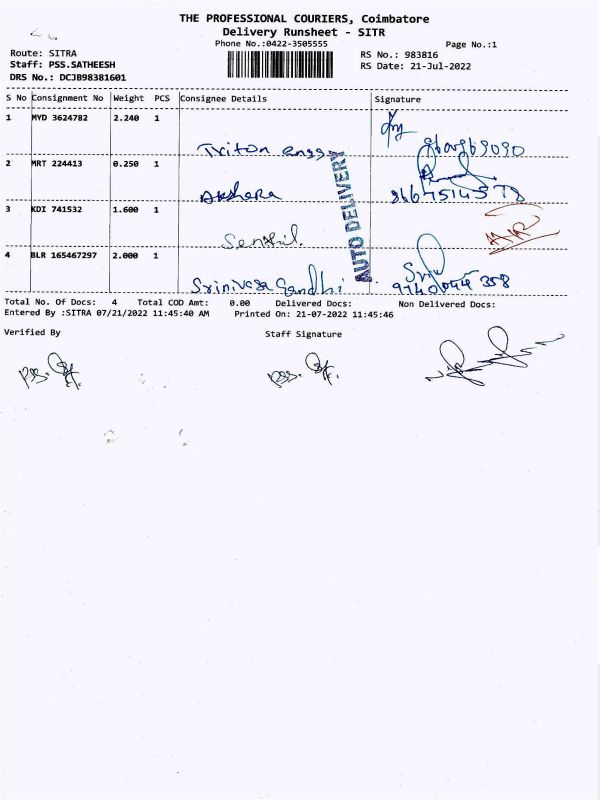 THE PROFESSIONAL COURIERS, Coimbatore
Delivery Runsheet - SITR
Phone No.:0422-3505555
Page No.:1
Route: SITRA
RS No.: 983816
Staff: PSS.SATHEESH
RS Date: 21-Jul-2022
DRS No.: DCJB98381601
S No Consignment No Weight PCS Consignee Details Signature
1 MYD 3624782 2.240 1
Triton engg
2 MRT 224413 0.250 1
Akshera
9667514578
3 KDI 741532 1.600 1
Senthil.
4 BLR 165467297 2.000 1
Srinivasa Gandhi
9740044358
AUTO DELIVERY
Total No. Of Docs: 4 Total COD Amt: 0.00 Delivered Docs: Non Delivered Docs:
Entered By :SITRA 07/21/2022 11:45:40 AM Printed On: 21-07-2022 11:45:46
Verified By Staff Signature
PSS. PSS.